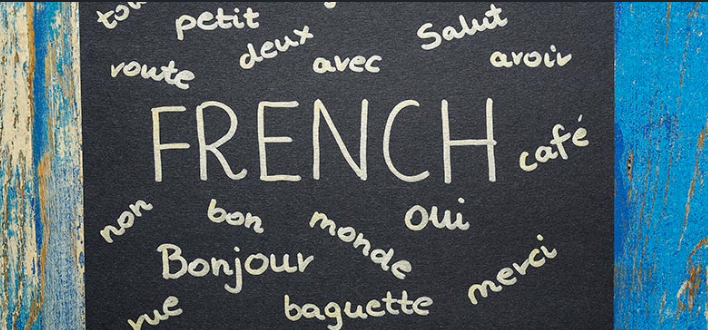 petit
Salut
deux
route
avec
avoir
FRENCH
café
non
bon
monde
oui
Bonjour
merci
rue
baguette